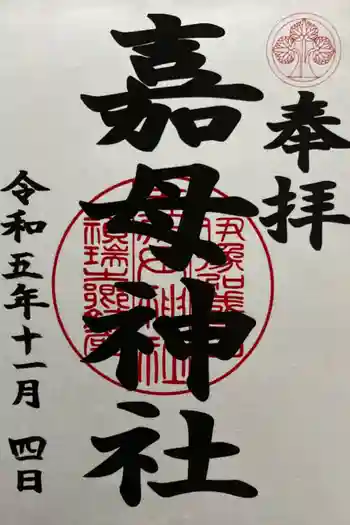 奉拝
嘉母神社
令和五年十一月四日